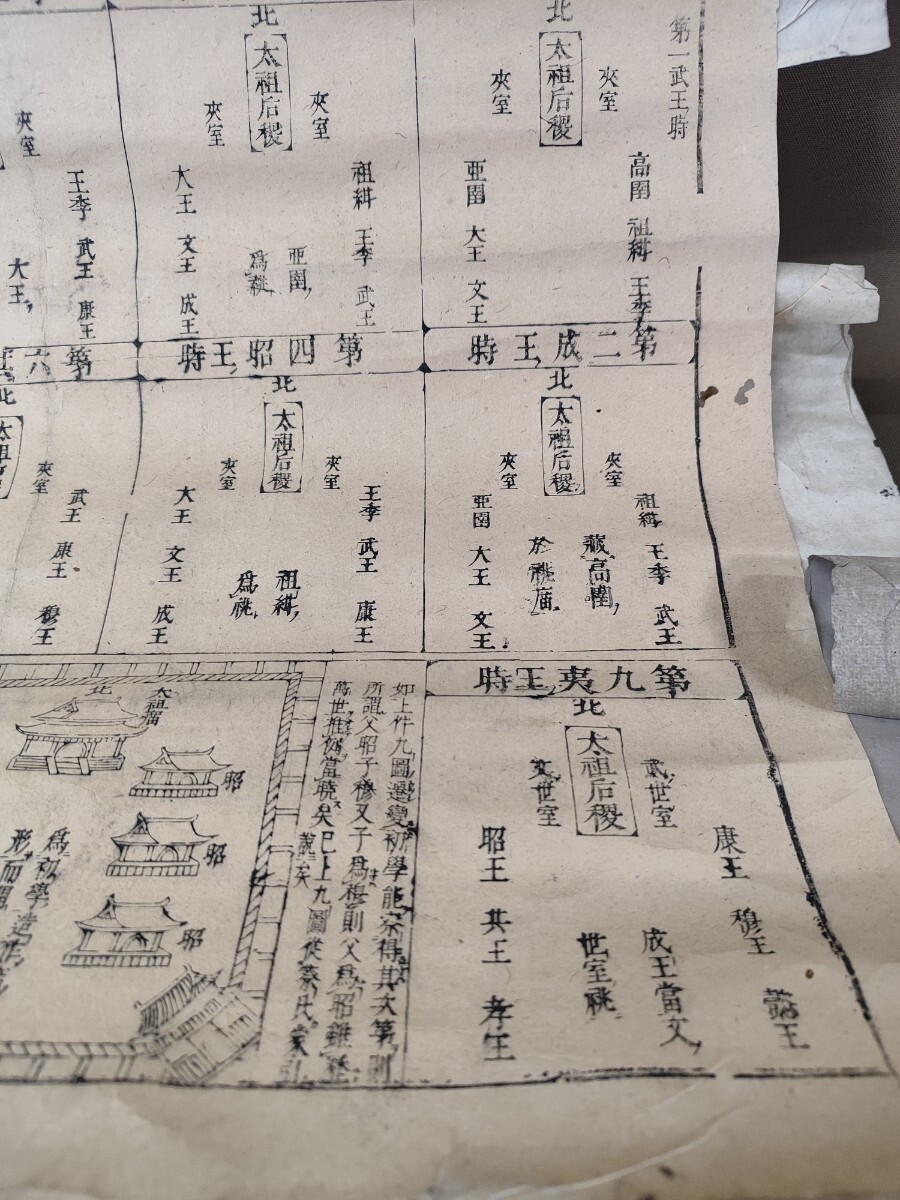 第一武王時
北
太祖后稷
夾室
夾室
高圉 祖紺 王季
亜圉 大王 文王
第二成王時
北
太祖后稷
夾室
夾室
祖紺 王季 武王
藏高圉
於祧庿
亜圉 大王 文王
北
太祖后稷
夾室
夾室
祖紺 王季 武王
亜圉
為祧
大王 文王 成王
第四昭王時
北
太祖后稷
夾室
夾室
王季 武王 康王
祖紺
為祧
大王 文王 成王
夾室
王季 武王 康王
大王
第六
北
夾室
武王 康王 穆王
第九夷王時
北
太祖后稷
武世室
文世室
康王 穆王 懿王
成王當文
世室祧
昭王 共王 孝王
如上件九圖遷變初學能察得其次第則
所謂父昭子穆又子為穆則父為昭雖
萬世推例當曉矣已上九圖従蔡氏
說矣
太祖庿
北
昭
昭
昭
為初學造
形而